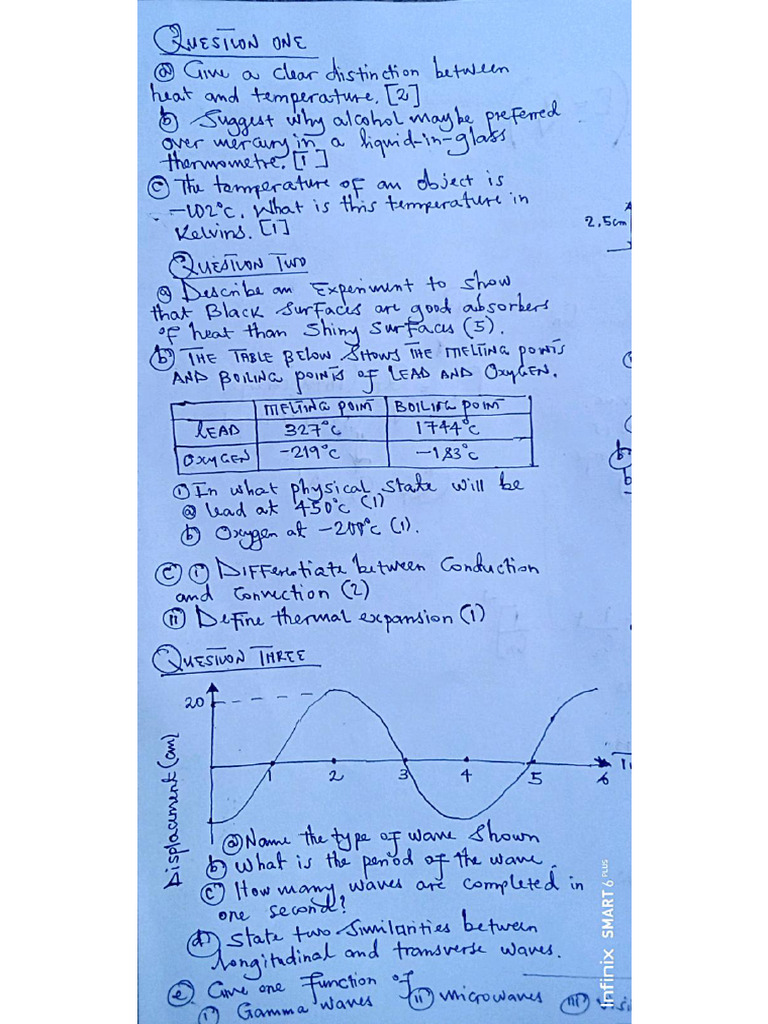 QUESTION ONE
ⓐ Give a clear distinction between
heat and temperature. [2]
ⓑ Suggest why alcohol may be preferred
over mercury in a liquid-in-glass
thermometre. [1]
ⓒ The temperature of an object is
-102°C. What is this temperature in
Kelvins. [1]
2,5cm
QUESTION TWO
ⓐ Describe an Experiment to show
that Black Surfaces are good absorbers
of heat than Shiny Surfaces (5).
ⓑ THE TABLE BELOW SHOWS THE MELTING POINTS
AND BOILING POINTS OF LEAD AND OXYGEN.
MELTING POINT BOILING POINT
LEAD 327°C 1744°C
OXYGEN -219°C -183°C
ⓘ In what physical state will be
ⓐ lead at 450°C (1)
ⓑ Oxygen at -200°C (1).
ⓒ ⓘ Differentiate between Conduction
and Convection (2)
ⓘⓘ Define thermal expansion (1)
QUESTION THREE
20
1 2 3 4 5 6
Displacement (cm)
ⓐ Name the type of wave shown
ⓑ What is the period of the wave.
ⓒ How many waves are completed in
one second?
ⓓ State two Similarities between
longitudinal and transverse waves.
ⓔ Give one function of
ⓘ Gamma waves ⓘⓘ microwaves ⓘⓘⓘ
Infinix SMART 6 PLUS